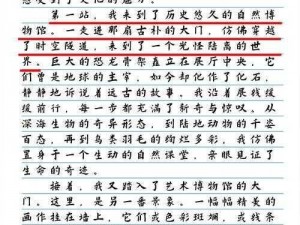 第一站，我来到了历史悠久的自然博
物馆。一走进那扇古朴的大门，仿佛穿越
了时空隧道，来到了一个光怪陆离的世
界。巨大的恐龙骨架直立在展厅中央，它
们曾是地球的主宰，如今却化作了化石，
静静地诉说着远古的故事。我沿着展线缓
缓前行，每一步都充满了新奇与惊叹。从
深海生物的奇异形态，到陆地动物的千姿
百态，再到鸟类羽毛的绚烂多彩，我仿佛
置身于一个生动的自然课堂，亲眼见证了
生命的奇迹。
接着，我又踏入了艺术博物馆的大
门。这里，是另一番景象。一幅幅精美的
画作挂在墙上，它们或色彩斑斓，或线条